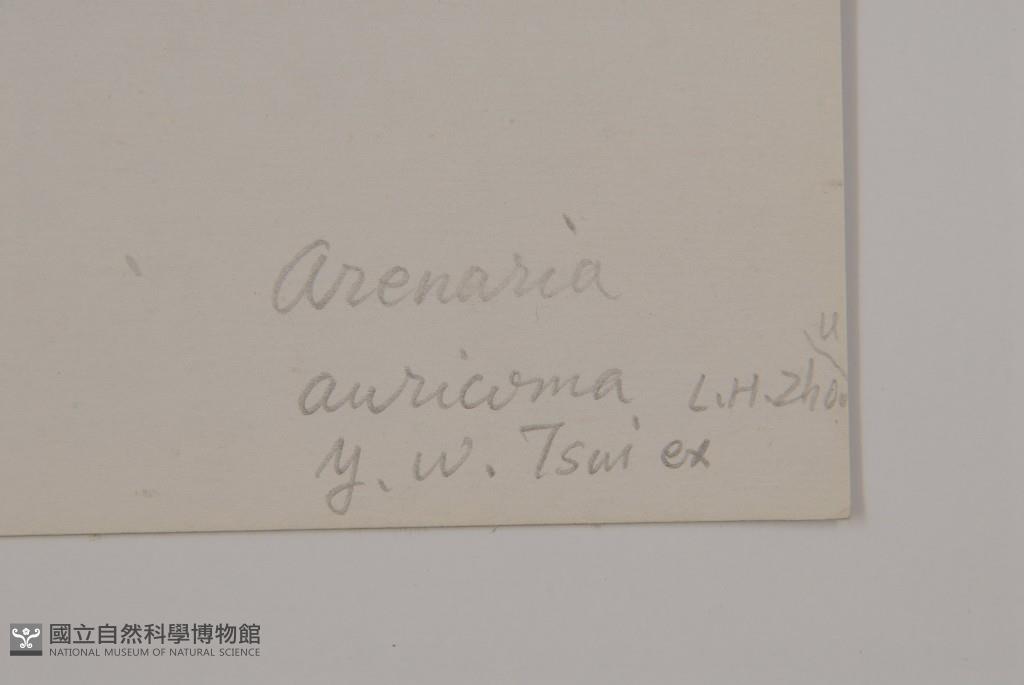 Arenaria
auricoma L.H.Zhou.
Y. W. Tsui ex
國立自然科學博物館
NATIONAL MUSEUM OF NATURAL SCIENCE